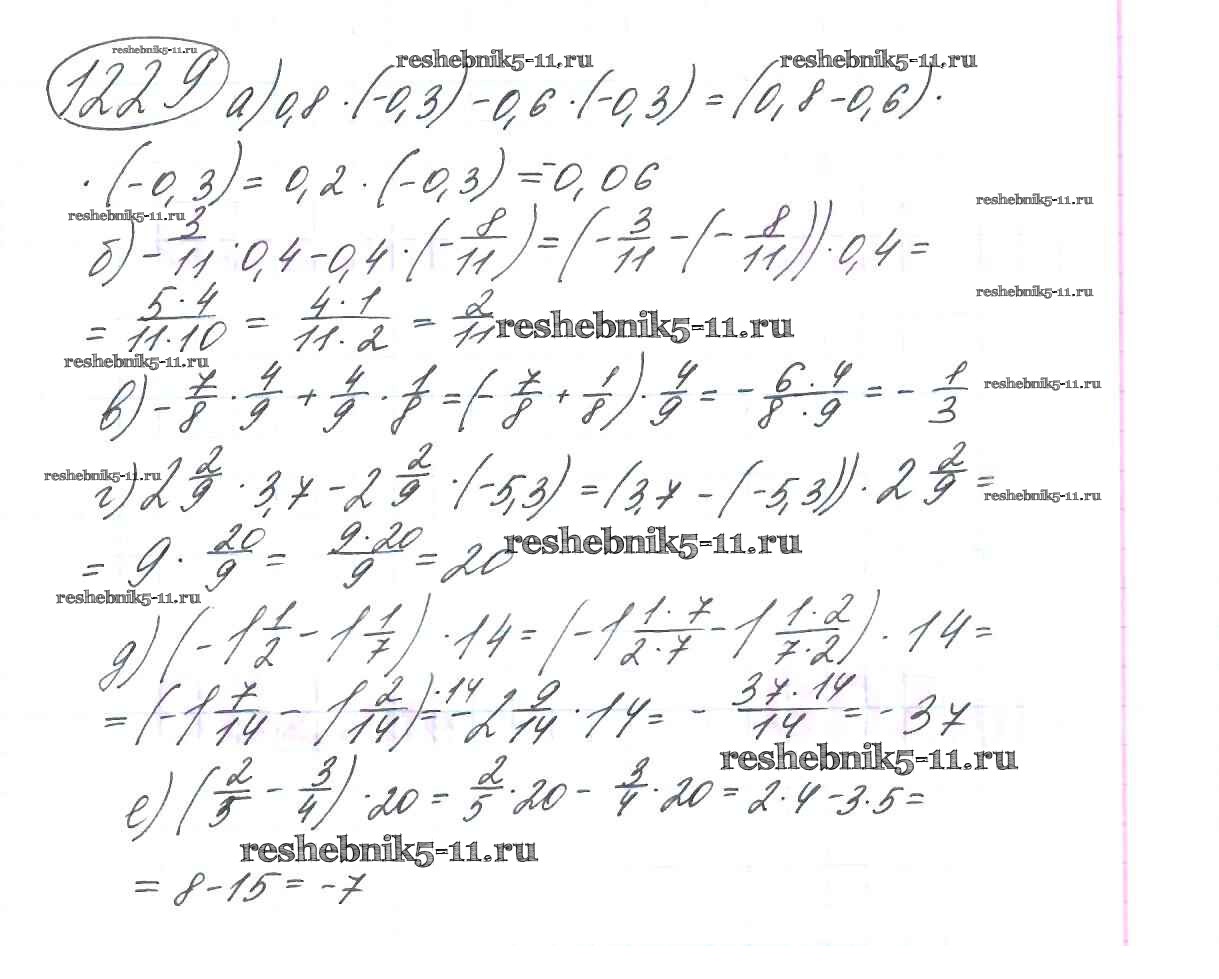 reshebnik5-11.ru reshebnik5-11.ru reshebnik5-11.ru
1229 а) 0,8 · (-0,3) - 0,6 · (-0,3) = (0,8 - 0,6) ·
· (-0,3) = 0,2 · (-0,3) = -0,06
reshebnik5-11.ru reshebnik5-11.ru
б) - 3/11 · 0,4 - 0,4 · (- 8/11) = (- 3/11 - (- 8/11)) · 0,4 =
reshebnik5-11.ru
= 5·4/11·10 = 4·1/11·2 = 2/11 reshebnik5-11.ru
reshebnik5-11.ru
в) - 7/8 · 4/9 + 4/9 · 1/8 = (- 7/8 + 1/8) · 4/9 = - 6·4/8·9 = - 1/3 reshebnik5-11.ru
reshebnik5-11.ru
г) 2 2/9 · 3,7 - 2 2/9 · (-5,3) = (3,7 - (-5,3)) · 2 2/9 = reshebnik5-11.ru
= 9 · 20/9 = 9·20/9 = 20 reshebnik5-11.ru
reshebnik5-11.ru
д) (-1 1/2 - 1 1/7) · 14 = (-1 1·7/2·7 - 1 1·2/7·2) · 14 =
= (-1 7/14 - 1 2/14) · 14 = -2 9/14 · 14 = - 37·14/14 = -37
reshebnik5-11.ru
е) (2/5 - 3/4) · 20 = 2/5 · 20 - 3/4 · 20 = 2·4 - 3·5 =
reshebnik5-11.ru
= 8 - 15 = -7